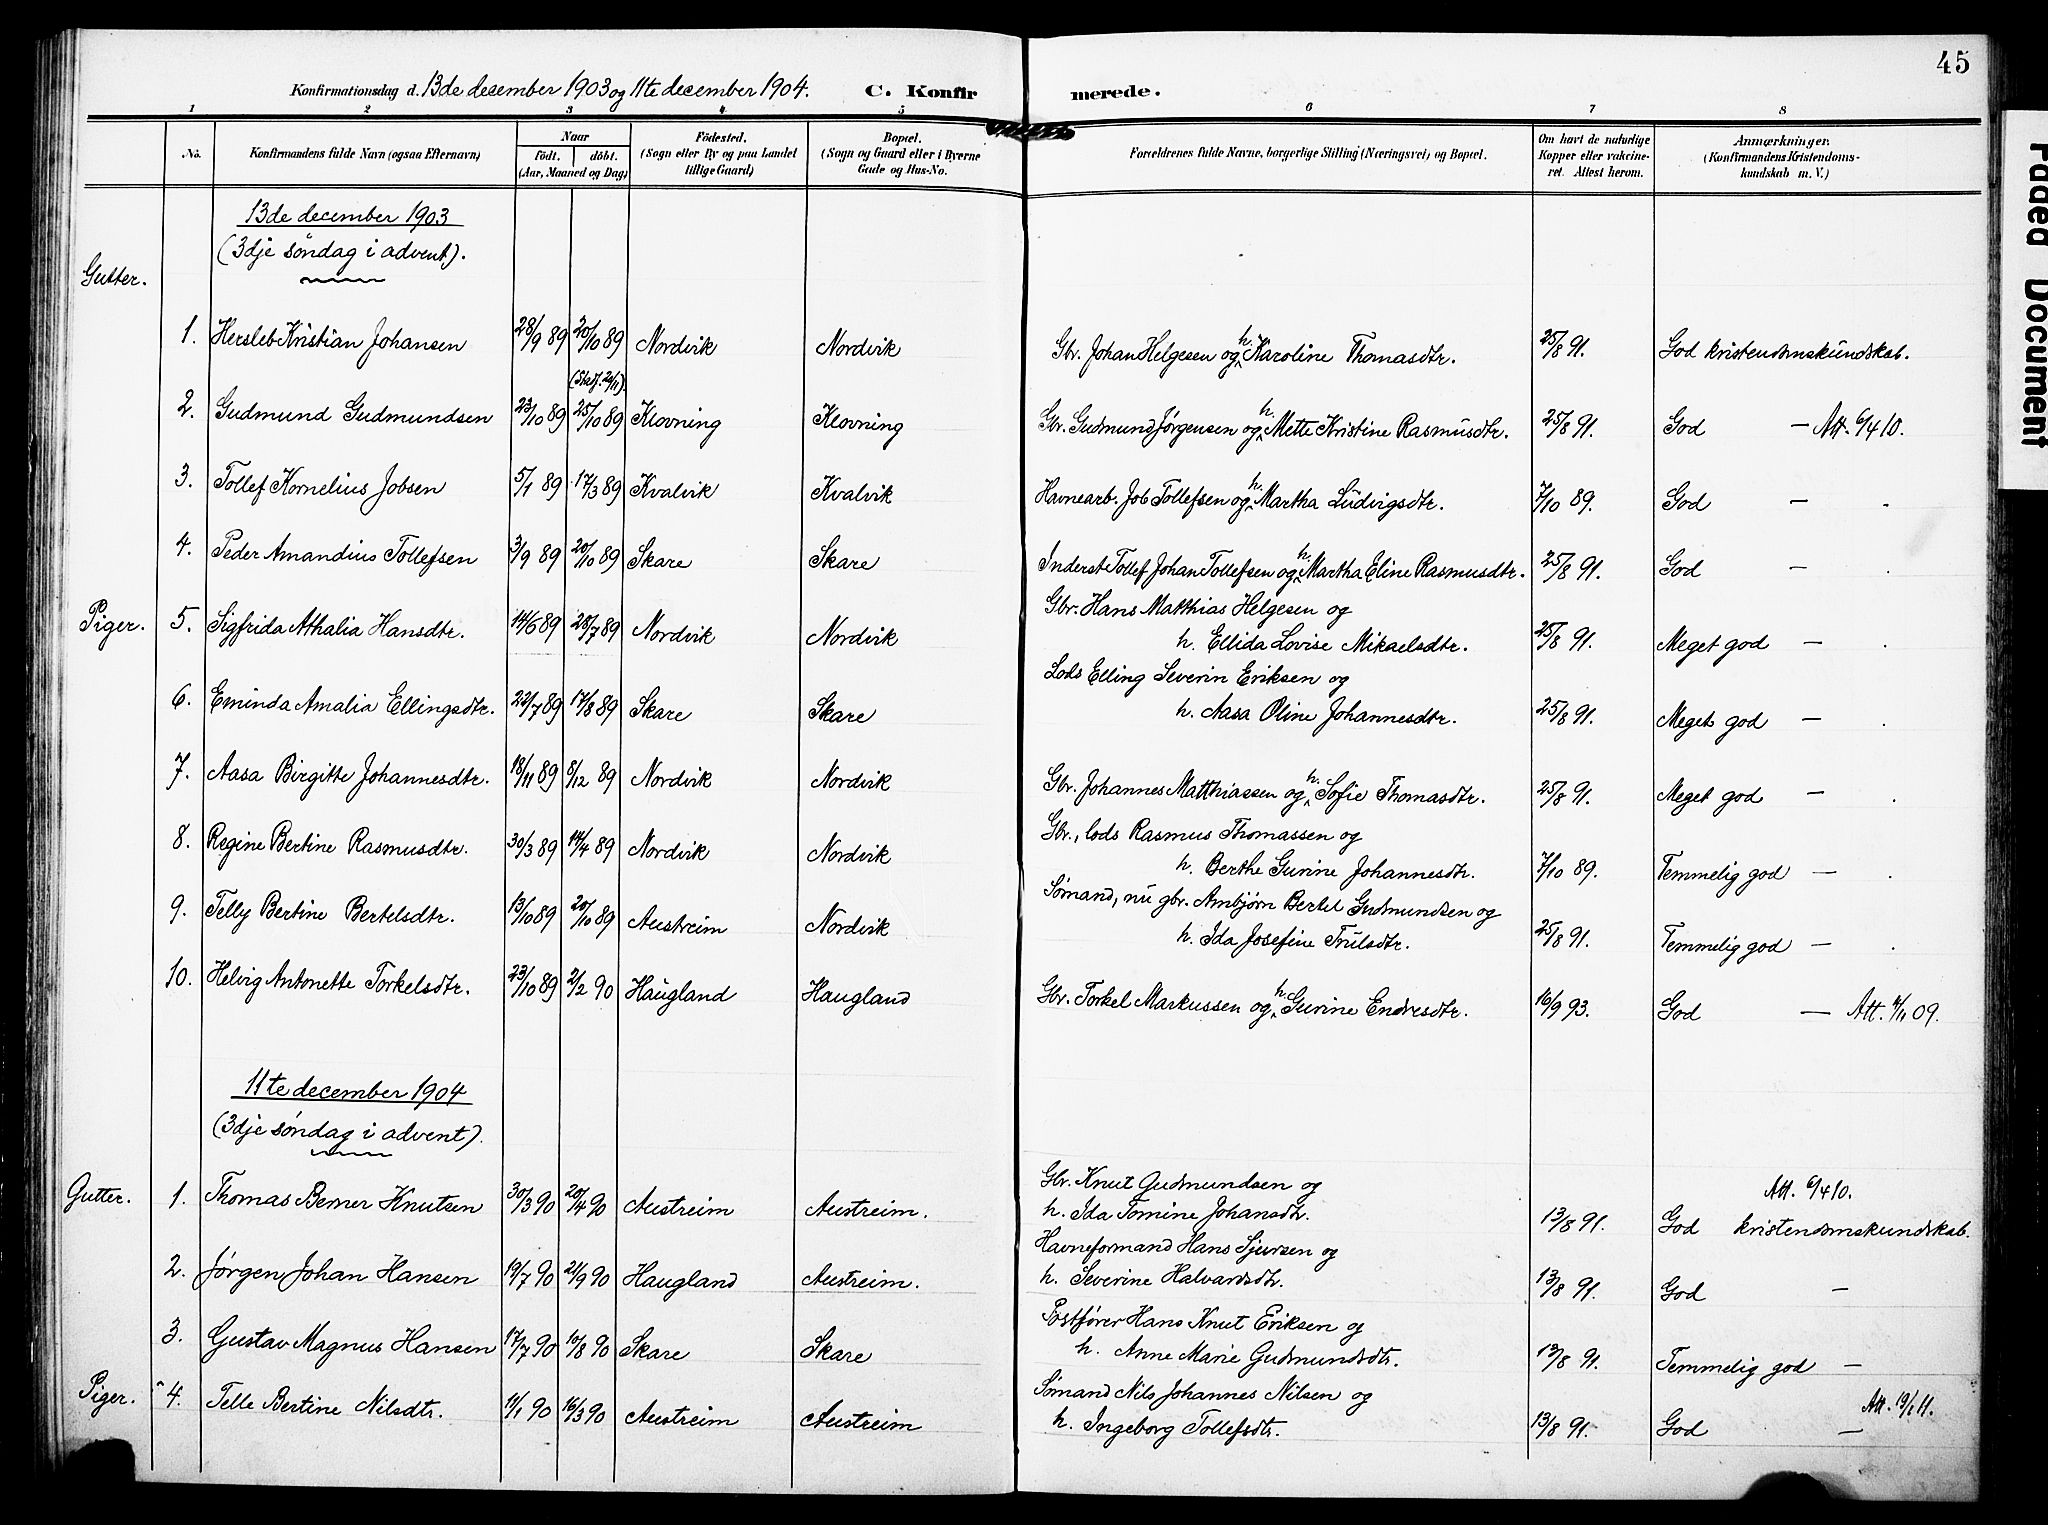 45
Konfirmationsdag d. 13de december 1903 og 11te december 1904. C. Konfirmerede.
1 2 3 4 5 6 7 8
No. Konfirmandens fulde Navn (ogsaa Efternavn) Naar født. døbt. (Aar, Maaned og Dag) Fødested. (Sogn eller By og paa Landet tillige Gaard) Bopæl. (Sogn og Gaard eller i Byerne Gade og Hus-No. Forældrenes fulde Navne, borgerlige Stilling (Næringsvei) og Bopæl. Om havt de naturlige Kopper eller vakcineret. Attest herom. Anmærkninger. (Konfirmandens Kristendomskundskab m. V.)
13de december 1903
(3dje søndag i advent).
Gutter.
1. Hersleb Kristian Johansen 28/9 89 20/10 89 Nordvik Nordvik Gbr. Johan Helgesen og h. Karoline Thomasdtr. 25/8 91. God kristendomskundskab.
(Stadf. 24/11).
2. Gudmund Gudmundsen 23/10 89 25/10 89 Klovning Klovning Gbr. Gudmund Jørgensen og h. Mette Kristine Rasmusdtr. 25/8 91. God — Att. 6/4 10.
3. Tollef Kornelius Jobsen 5/1 89 17/3 89 Kvalvik Kvalvik Havnearb. Job Tollefsen og h. Martha Ludvigsdtr. 7/10 89. God —
4. Peder Amandius Tollefsen 3/9 89 20/10 89 Skare Skare Inderst Tollef Johan Tollefsen og h. Martha Eline Rasmusdtr. 25/8 91. God —
Piger. 5. Sigfrida Athalia Hansdtr. 14/6 89 28/7 89 Nordvik Nordvik Gbr. Hans Matthias Helgesen og
h. Ellida Lovise Mikaelsdtr. 25/8 91. Meget god —
6. Eminda Amalia Ellingsdtr. 22/7 89 17/8 89 Skare Skare Lods Elling Severin Eriksen og
h. Aasa Oline Johannesdtr. 25/8 91. Meget god —
7. Aasa Birgitte Johannesdtr. 18/11 89 8/12 89 Nordvik Nordvik Gbr. Johannes Matthiassen og h. Sofie Thomasdtr. 25/8 91. Meget god —
8. Regine Bertine Rasmusdtr. 30/3 89 14/4 89 Nordvik Nordvik Gbr., lods Rasmus Thomassen og
h. Berthe Gurine Johannesdtr. 7/10 89. Temmelig god —
9. Telly Bertine Bertelsdtr. 13/10 89 20/10 89 Austreim Nordvik Sømand, nu gbr. Arnbjørn Bertel Gudmundsen og
h. Ida Josefine Trulsdtr. 25/8 91. Temmelig god —
10. Helvig Antonette Torkelsdtr. 23/10 89 2/2 90 Haugland Haugland Gbr. Torkel Markussen og h. Gurine Endresdtr. 16/9 93. God — Att. 4/11 09.
11te december 1904
(3dje søndag i advent).
Gutter. 1. Thomas Berner Knutsen 30/3 90 20/4 90 Austreim Austreim. Gbr. Knut Gudmundsen og
h. Ida Tomine Johansdtr. 13/8 91. God kristendomskundskab. Att. 6/4 10.
2. Jørgen Johan Hansen 19/7 90 21/9 90 Haugland Austreim. Havneformand Hans Sjursen og
h. Severine Halvardsdtr. 13/8 91. God —
3. Gustav Magnus Hansen 17/7 90 10/8 90 Skare Skare Postfører Hans Knut Eriksen og
h. Anne Marie Gudmundsdtr. 13/8 91. Temmelig god —
Piger. 4. Telle Bertine Nilsdtr. 11/1 90 16/3 90 Austreim Austreim Sømand Nils Johannes Nilsen og
h. Ingeborg Tollefsdtr. 13/8 91. God — Att.
Paged Document